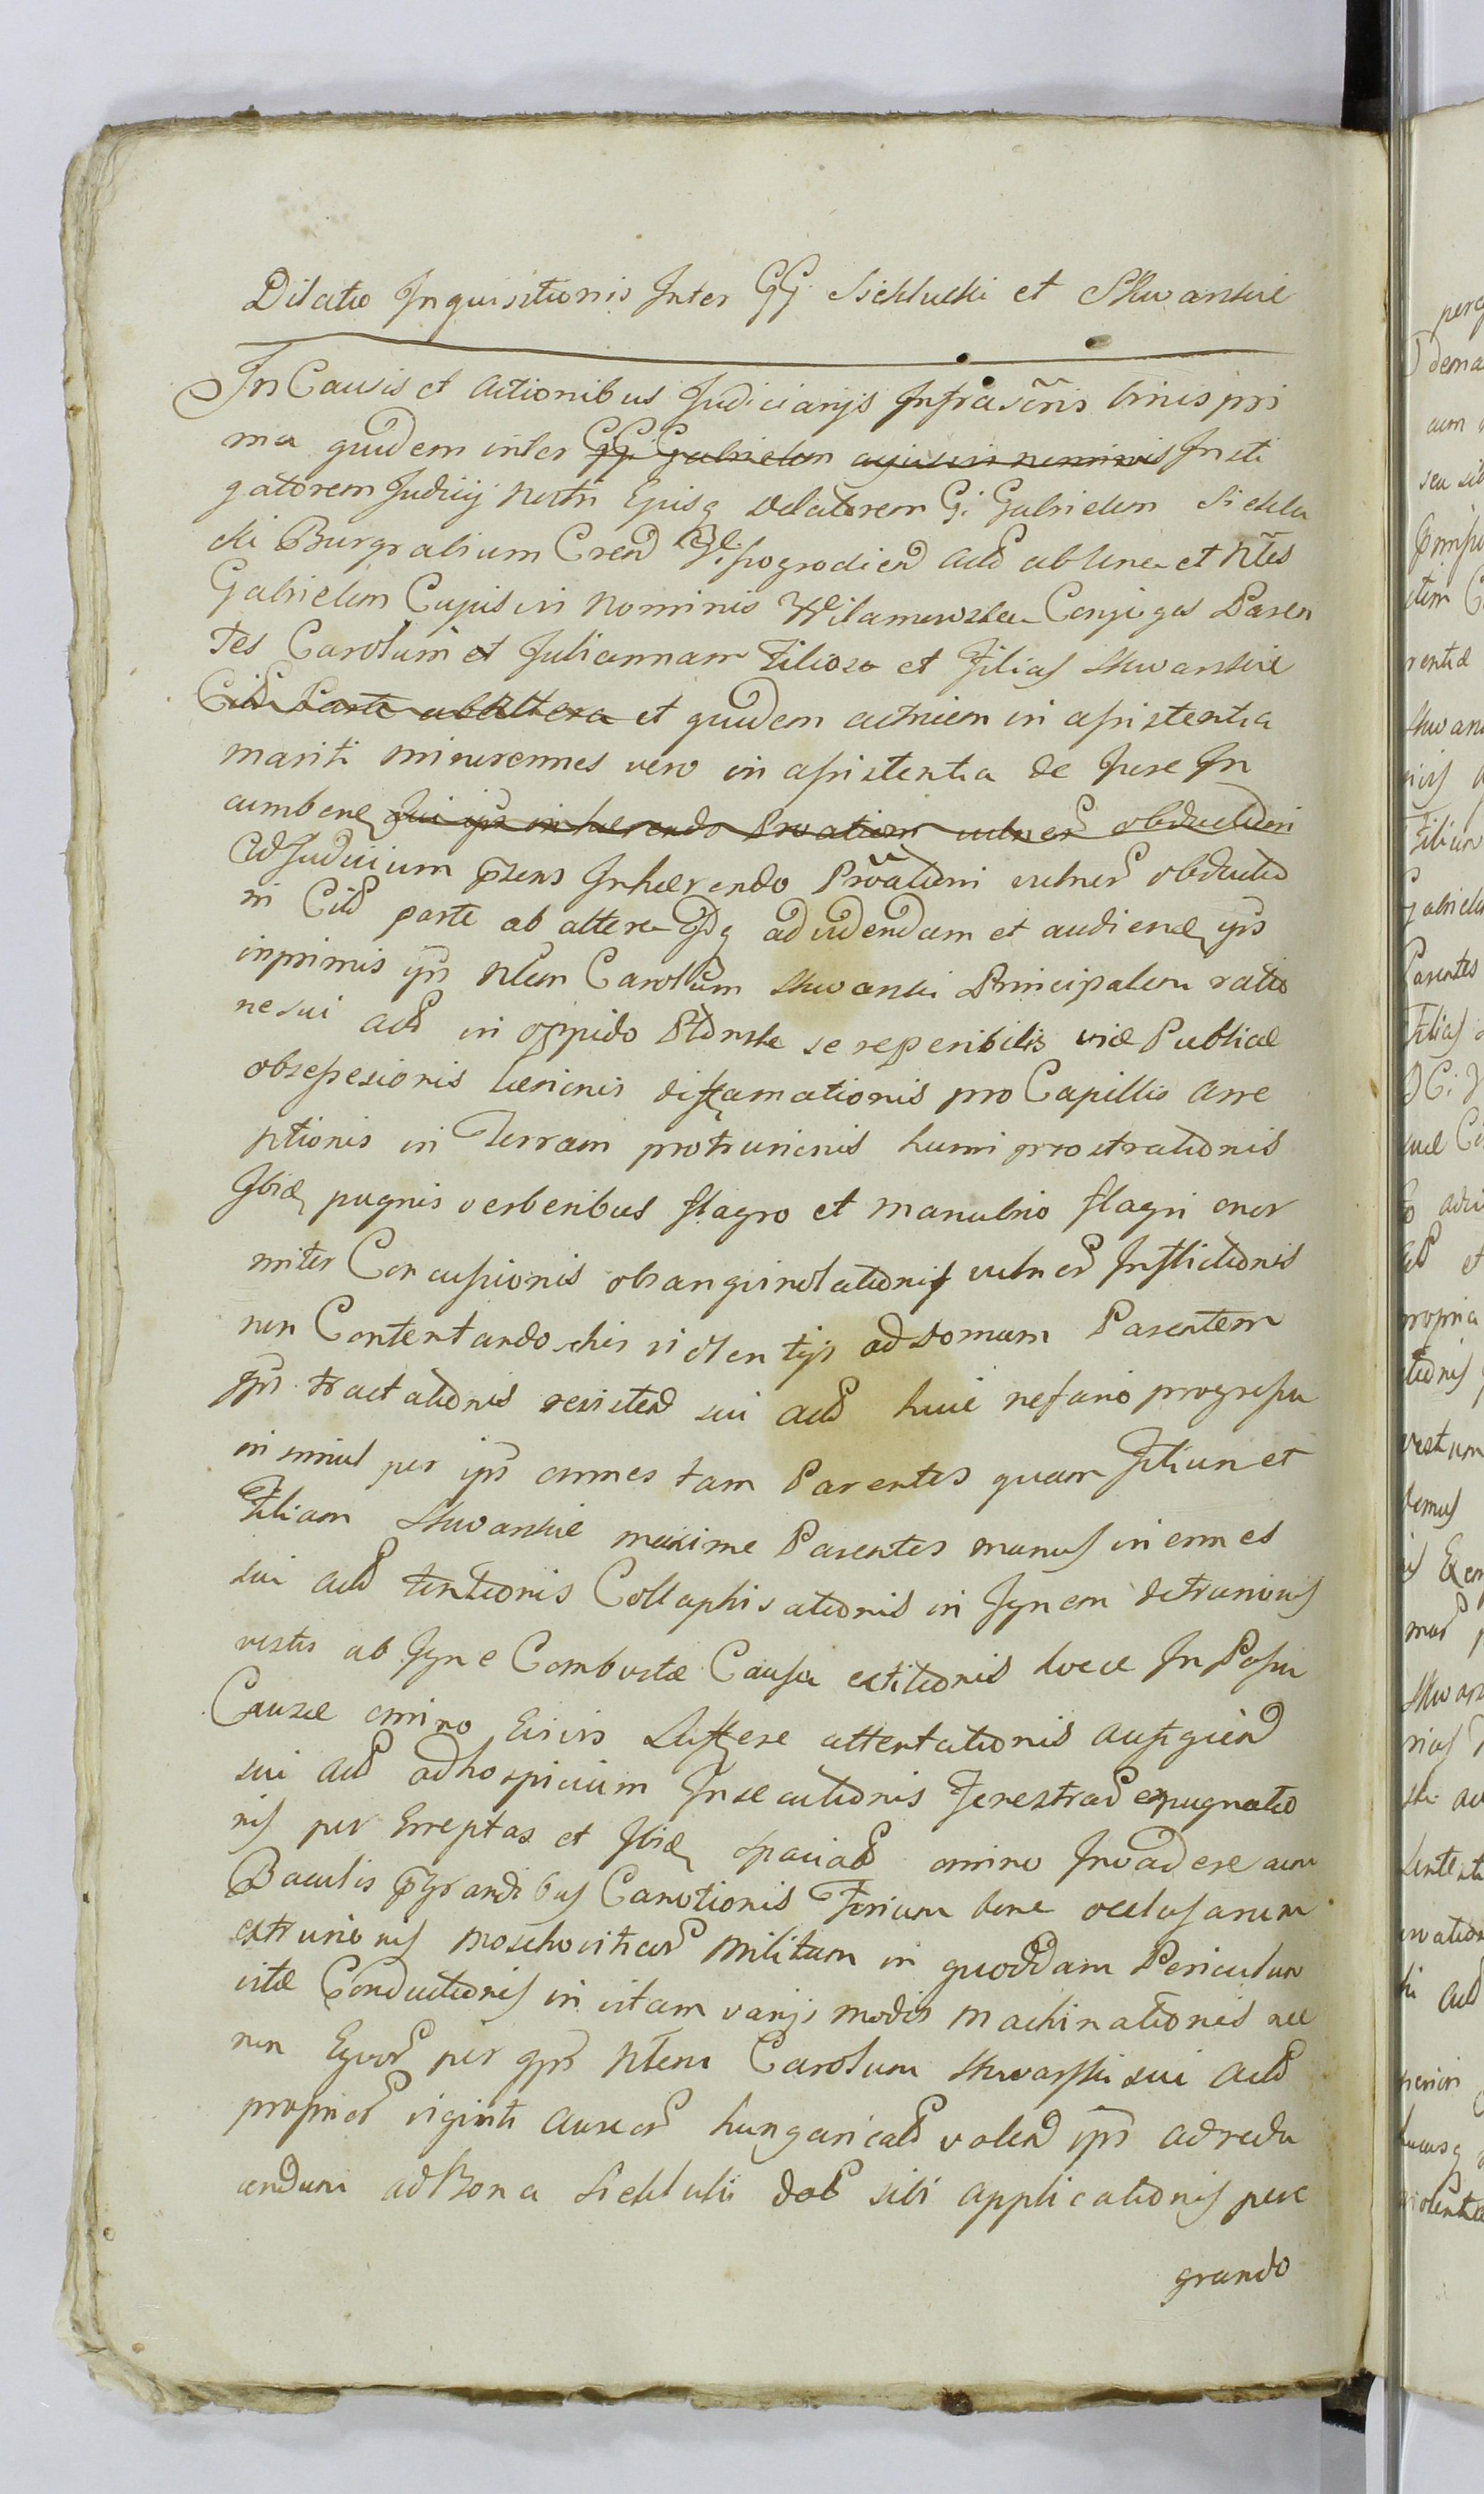 Dilatio Inquisitionis Inter GG Siekluckі et Skwarskie
In Causis et Actionibus Judiciarijs Infrascris binis pri
ma quidem inter GG. Gabrielem cujusvis nominis Insti
gatorem Judicij Nostri Ejusq Delatorem G. Gabrielem Sieklu
cki Burgrabium Cren Wyszogrodien Act ab una et Nles
Gabrielem Cujusvis Nominis Wilamowska Conjuges Paren
tes Carolum et Juliannam Filios et Filias Skwarskie
Cit Parte ab Altera et quidem actricem in assistentia
mariti minurennes vero in assistentia de Jure In
cumben
Ad Judicium prens Inhaerendo Provationi vulner obductio
ni Cit parte ab altera Idq ad videndum et audien ips
inprimis ips Nlem Carolum Skwarski Principalem ratio
ne sui act in oppido Płonsk se reperibilis viae Publicae
obsessesionis laesionis diffamationis pro Capillis Arre
ptionis in Terram protrusionis humi prostrationis
Ibid pugnis verberibus flagro et manubrio flagri enor
miter Concussionis obsanguinolationis vulner Inflictionis
non Contentando his violentijs ad Domum Parentem
ips tractationis resisten sui act huic nefario progressu
insimul per ips omnes tam Parentes quam Filium et
Filiam Skwarskie maxime Parentes manus inermes
sui act tentionis Collaphisationis in Ignem detrusionis
vestis ab Igne Combustae Causa extitionis haece In Passu
Causae omino Eisivis Suffere attentationis aufugien
sui act ad hospicium Insecutionis Fenestrar expugnatio
nis per Erreptas et Ibid omino Invadere cum
Baculis pgrandibus Canotionis Forium bene occlusarum
extrusionis Moschoviticar Militum in quoddam Periculum
vitae Conductionis in vitam varijs modis Machinationis nec
non Equor per ips Nlem Carolum Skwarski sui act
proprior viginti Aureor hungarical valen ips ad redu
cendum ad Bona Siekluki dat sibi applicationis perc
grando